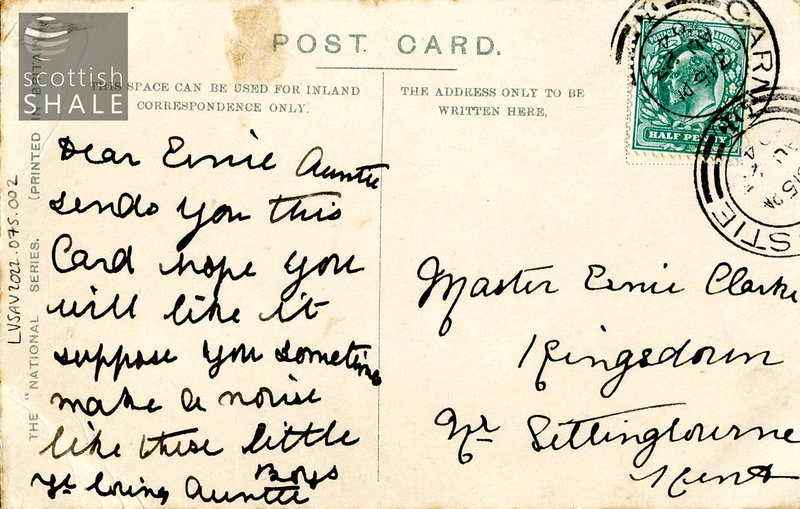 scottish
SHALE
POST CARD.
THIS SPACE CAN BE USED FOR INLAND
CORRESPONDENCE ONLY.
THE ADDRESS ONLY TO BE
WRITTEN HERE,
HALF PENNY
Dear Ernie Auntie
sends you this
Card hope you
will like it
suppose you sometime
make a noise
like these little
Boys
Yr loving Auntie
Master Ernie Clarke
Kingsdown
Nr Sittingbourne
Kent
THE "NATIONAL SERIES. (PRINTED IN BRITAIN
LVSAV2022.075.002